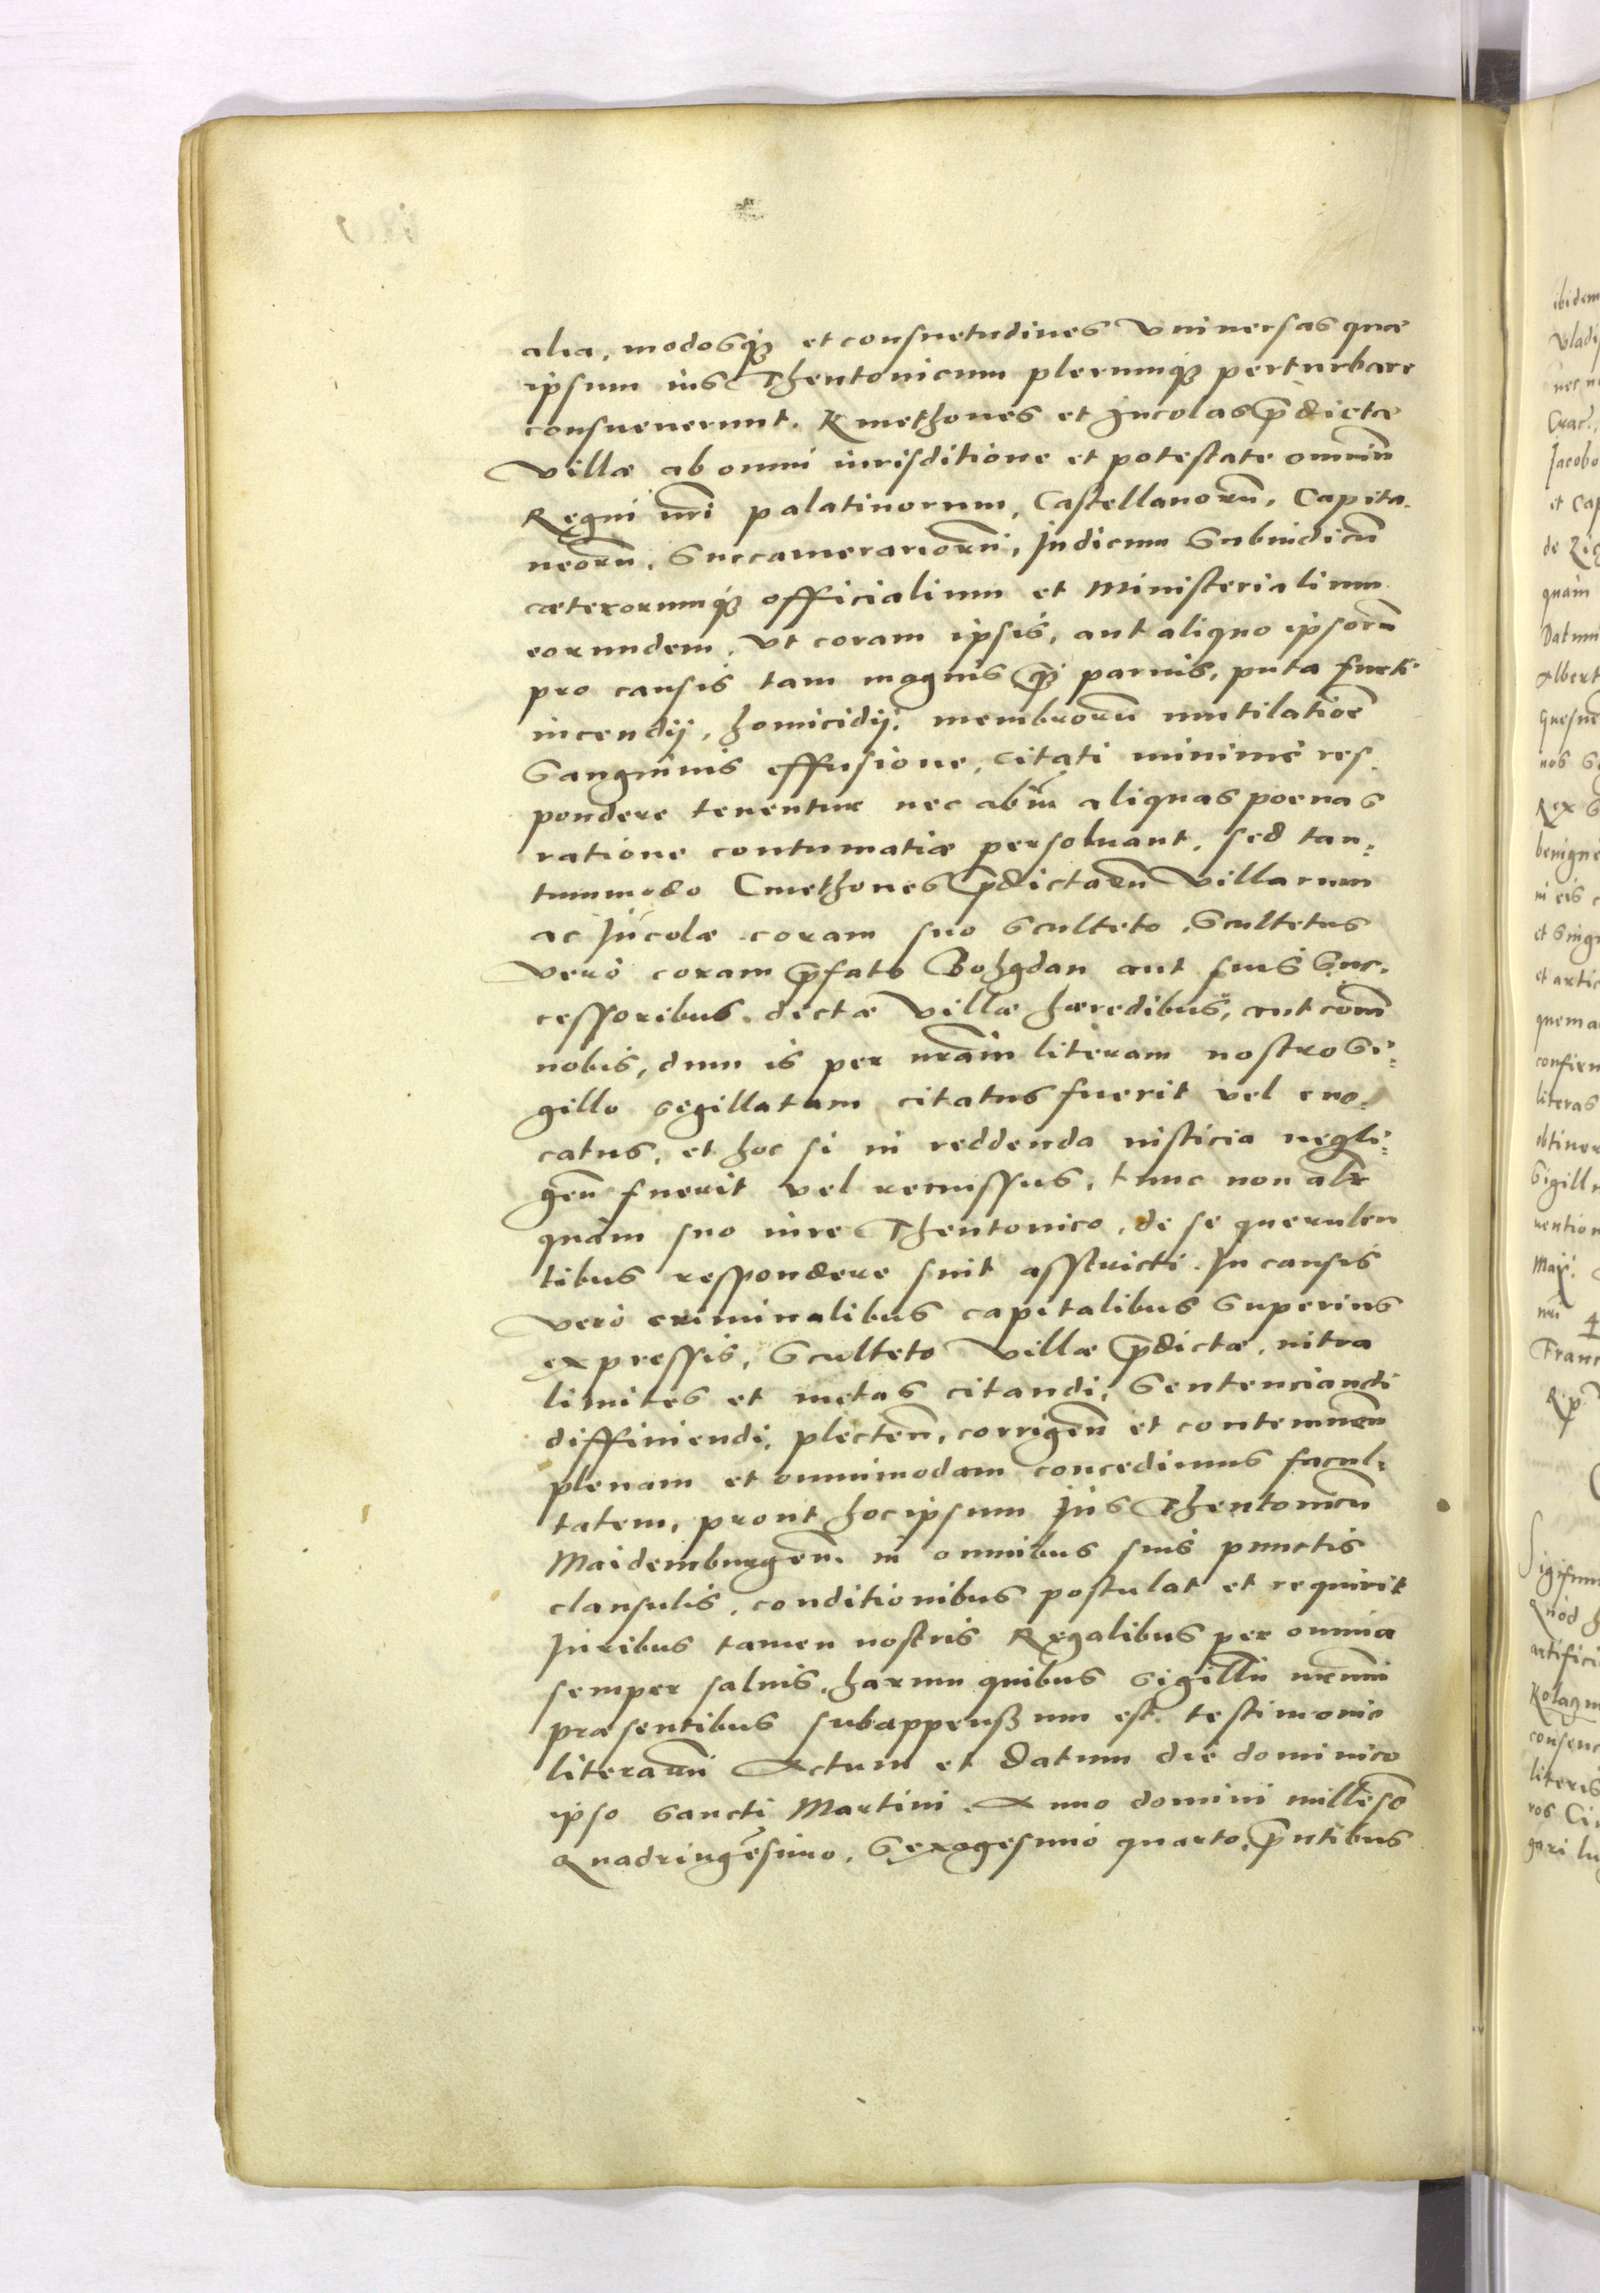 alia, modosq3 et consuetudines vniuersas quæ
ipsum ius Theutonicum plerumq3 perturbare
consueuerunt. Kmethones et Incolas p̄dictæ
villæ ab omni iurisditione et potestate omniū
Regni nr̄i palatinorum, Castellanorū, Capita-
neorū, Succamerariorū, Iudicum Subiudicū
cæterorumq3 officialium et Ministerialium
eorundem. Vt coram ipsis, aut aliquo ipsorū
pro causis tam magnis q̄3 paruis, puta furti
incendij, homicidij, membrorū mutilatioē
Sanguinis effusione, citati minime res-
pondere tenentur nec abīn aliquas poenas
ratione contumatiæ persoluant, sed tan:
tummodo Cmethones p̄dictarū villarum
ac Incolæ coram suo Sculteto, Scultetus
vero coram p̄fato Bohgdan aut suis Suc-
cessoribus dictæ villæ hæredibus, aut corā
nobis, dum is per nr̄am literam nostro Si:
gillo sigillatam citatus fuerit vel euo-
catus, et hoc si in reddenda iusticia negli:
gen̄ fuerit vel remissus, tunc non alr̄
quam suo iure Theutonico, de se querulen
tibus respondere sint asstricti. In causis
vero criminalibus capitalibus Superius
expressis, Sculteto villæ p̄dictæ, intra
limites et metas citandi, Sentenciandi
diffiniendi, plecten̄, corrigen̄ et contemnen̄
plenam et omnimodam concedimus facul:
tatem, prout hoc ipsum Ius Theutonicū
Maidemburgen̄. in omnibus suis punctis
clausulis, conditionibus postulat et requirit
Iuribus tamen nostris Regalibus per omnia
semper saluis, harum quibus Sigillū nr̄um
præsentibus subappensum est testimonio
literarum Actum et Datum die dominico
ipso Sancti Martini. Anno domini millesō
Quadringēsimo, Sexagesimo quarto, p̄ntibus
ibidem
Vladis
nec n
Crac̄.
Jacobo
et Cap
quam
Datum
Albert
nos S
Rex S
benigne
in eis c
et Sing
et artic
quema
confirm
literas
obtiner
Sigill
uention
Maij.
Franc
Sigism
Quod h
artifici
consenc
literis
ros Ci
gari lu